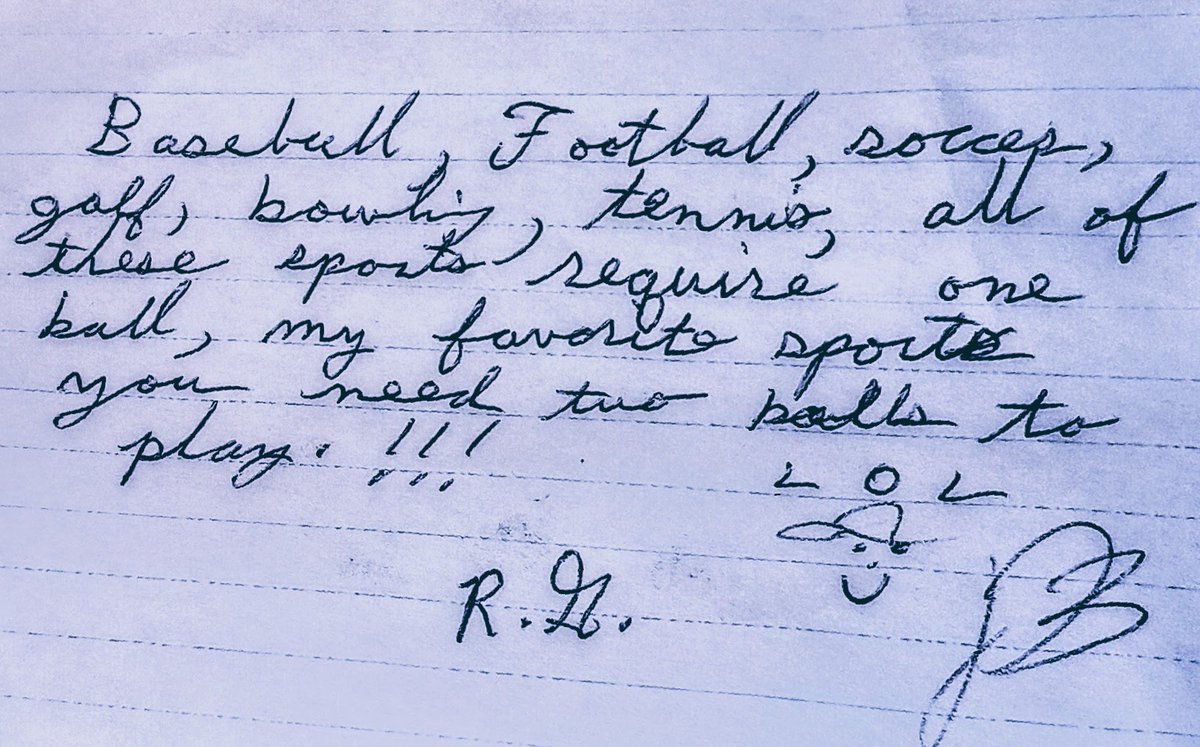 Baseball, Football, soccer,
golf, bowling, tennis, all of
these sports require one
ball, my favorite sport
you need two balls to
play. !!!
LOL
R.G.